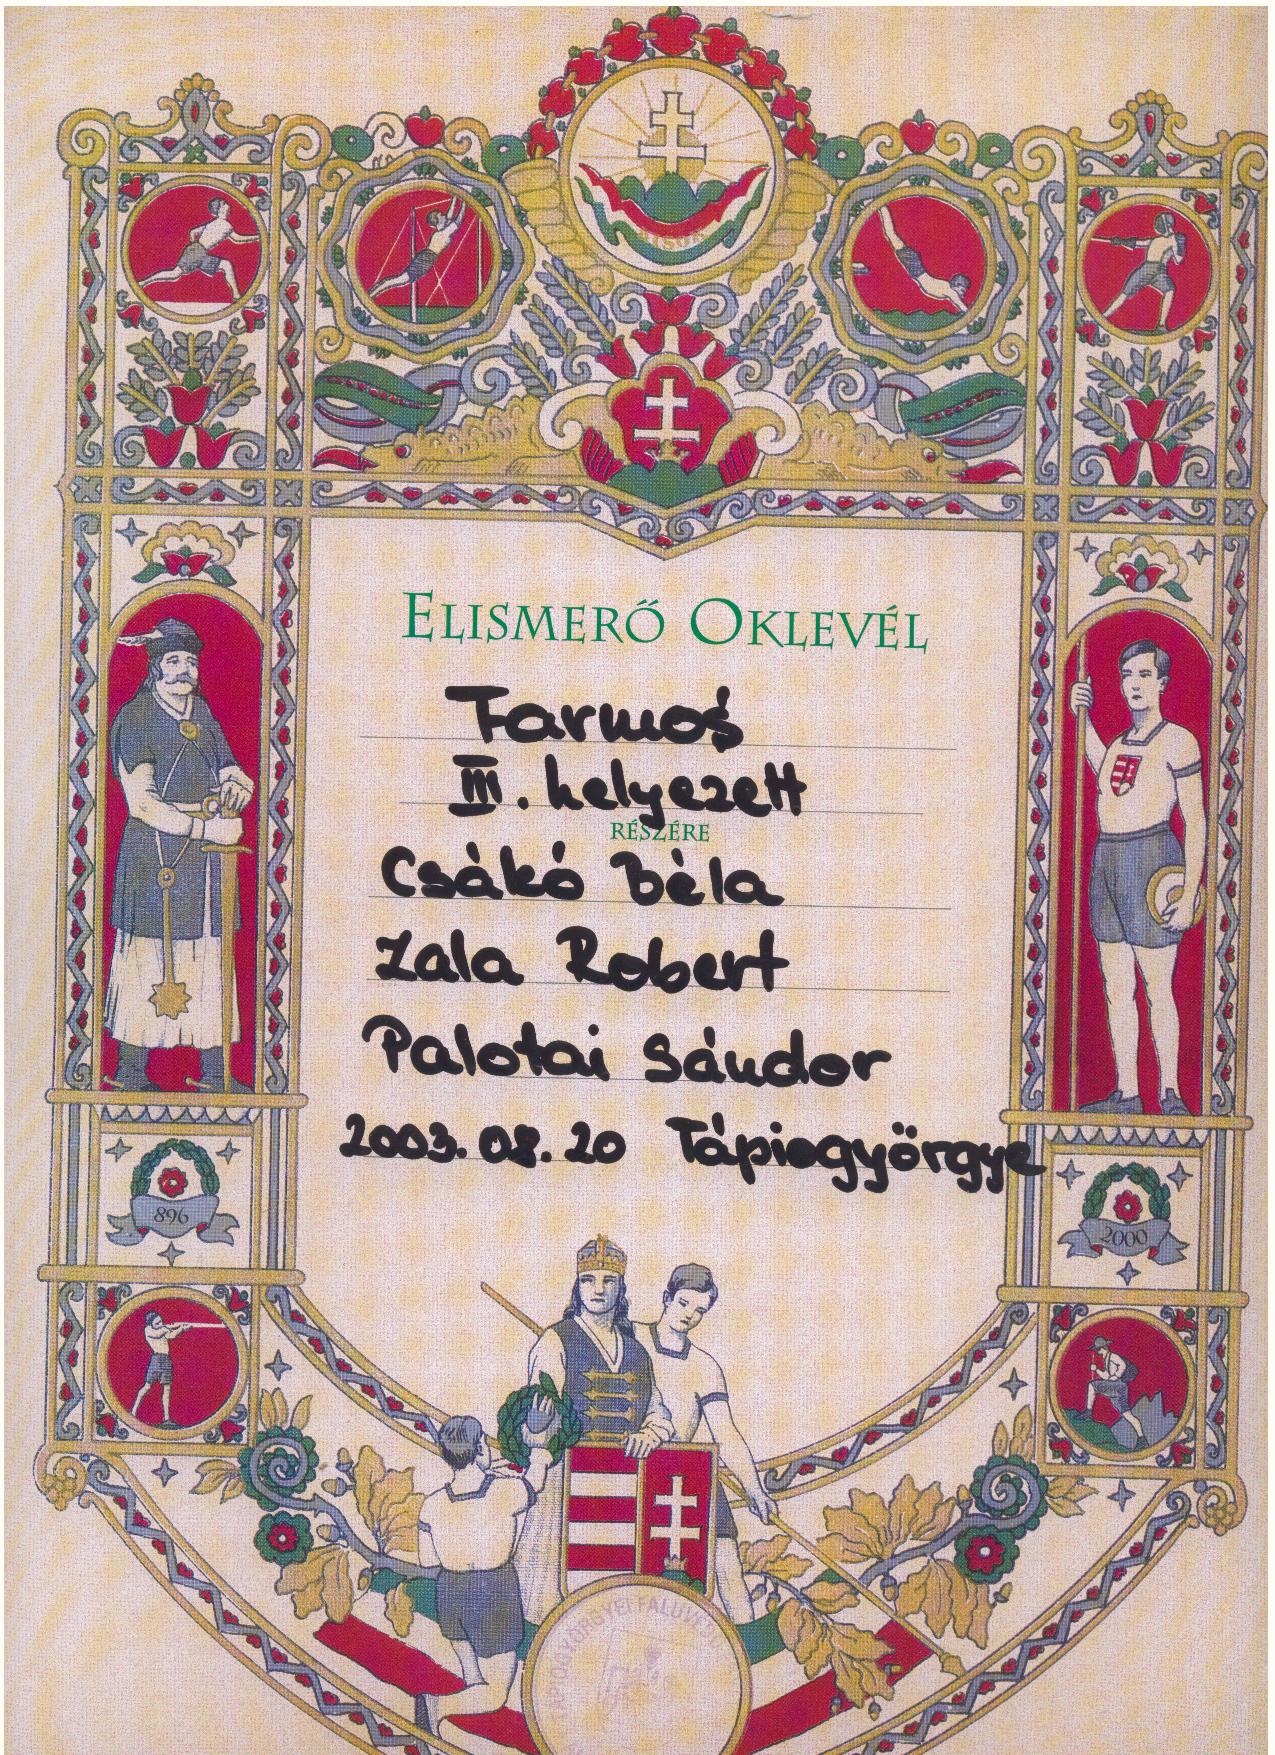 ELISMERŐ OKLEVÉL
Farmos
III. helyezett
RÉSZÉRE
Csákó Béla
Zala Robert
Palotai Sándor
2003. 08. 20 Tápiogyörgye
896
2000
TÁPIÓGYÖRGYEI FALUVÉDŐ